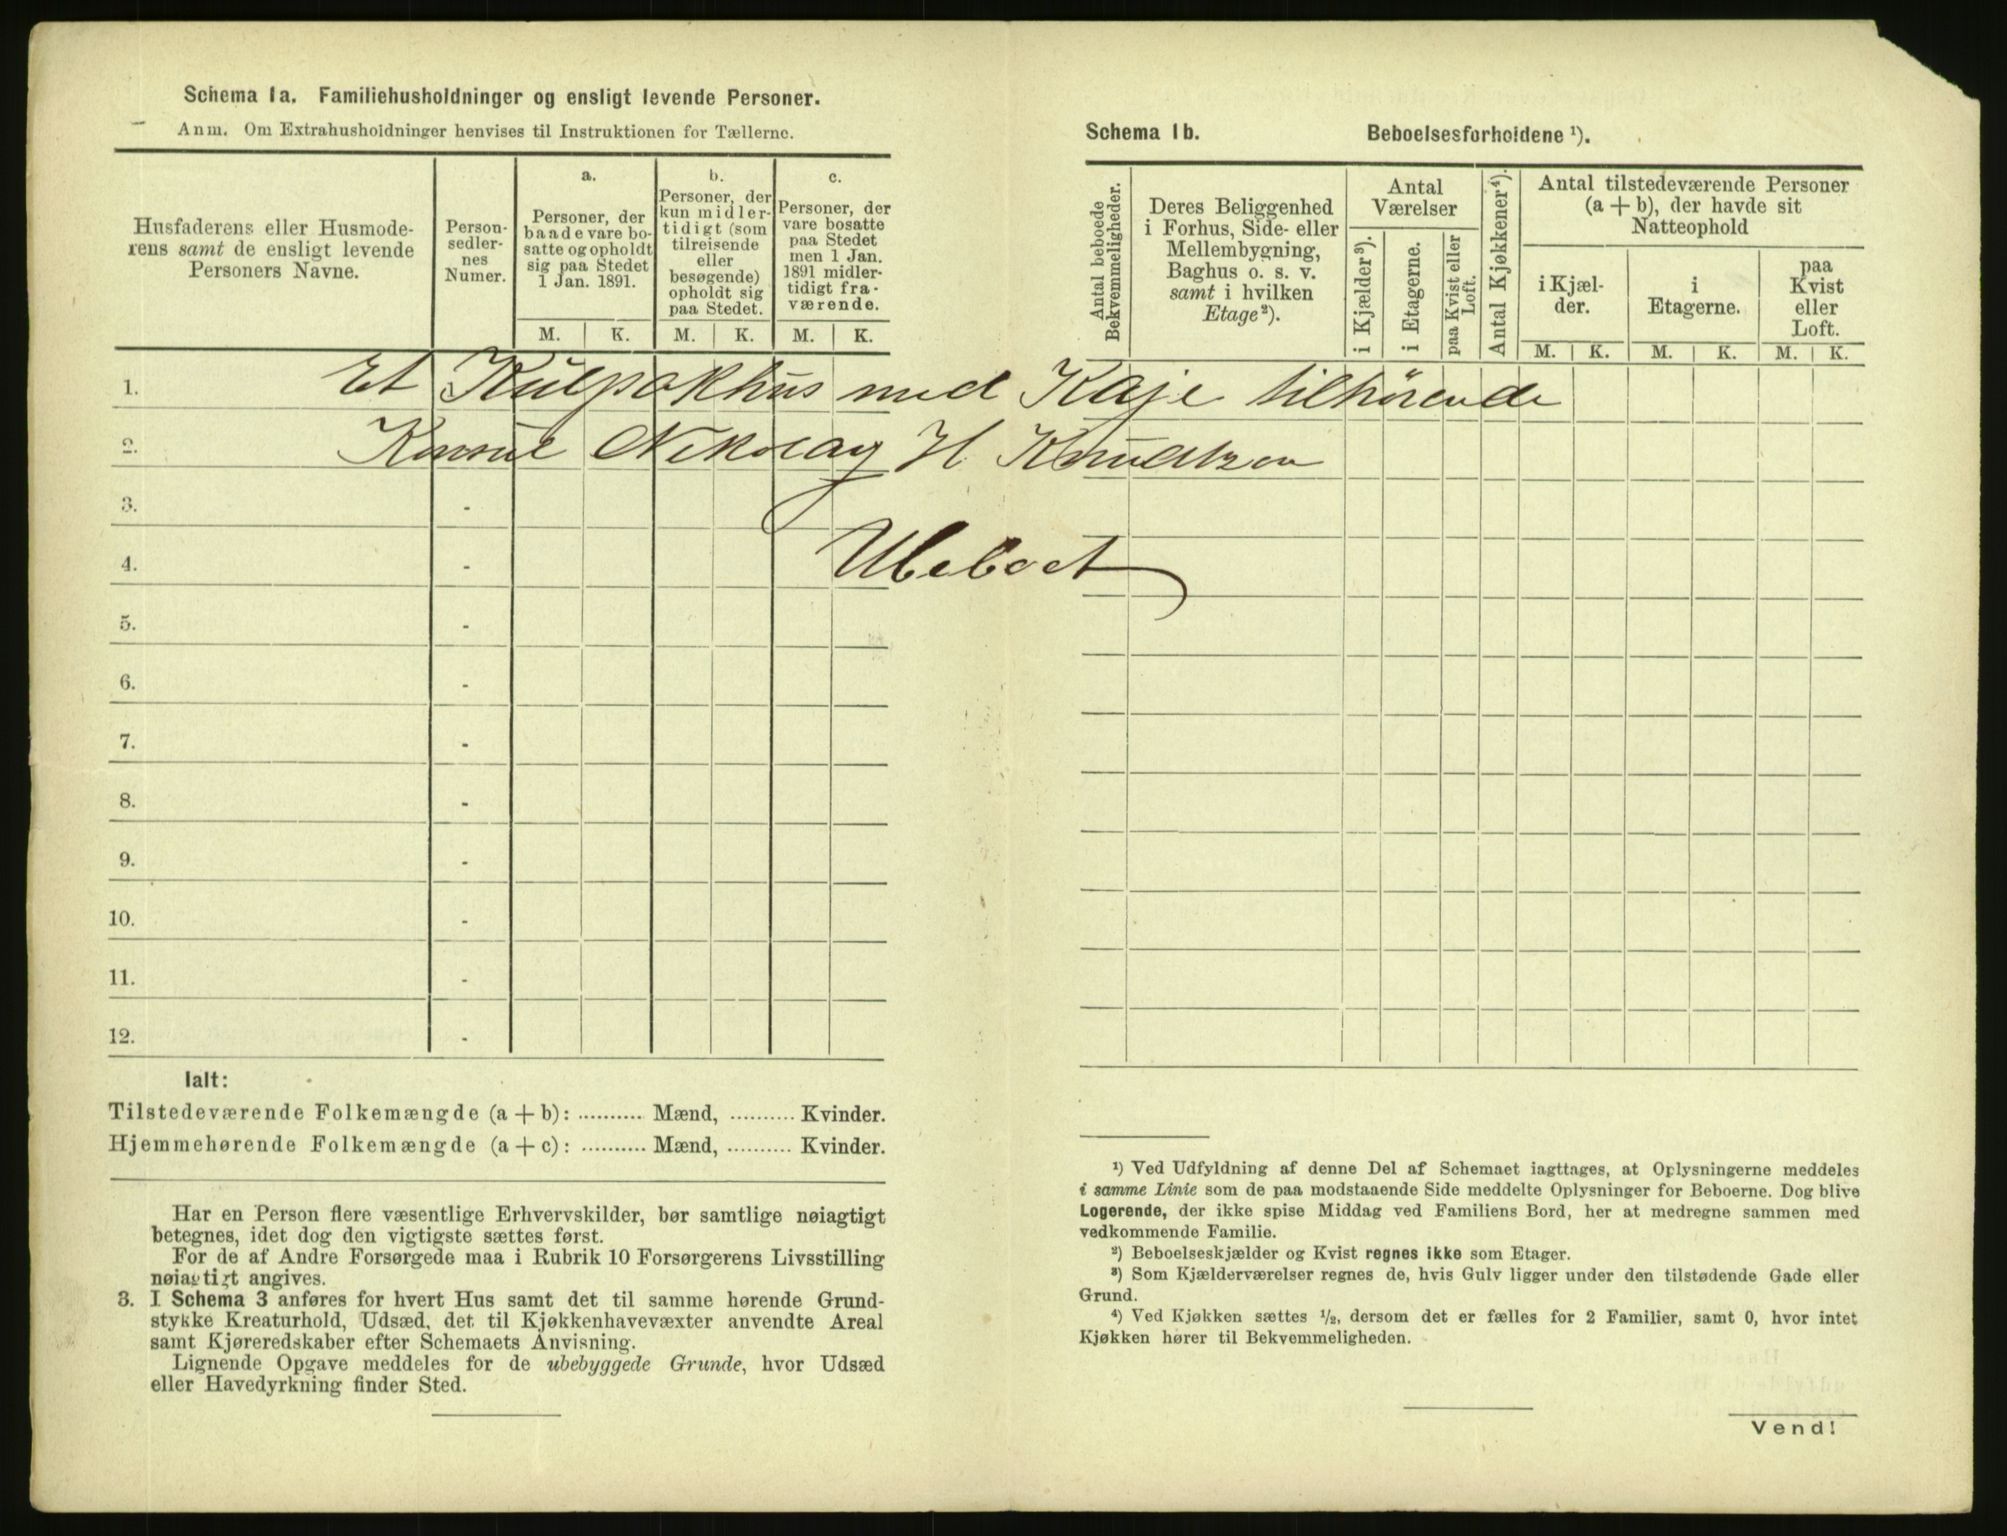 Schema 1a. Familiehusholdninger og ensligt levende Personer.
Anm. Om Extrahusholdninger henvises til Instruktionen for Tællerne.
Husfaderens eller Husmode-
rens samt de ensligt levende
Personers Navne.
Person-
sedler-
nes
Numer.
a.
Personer, der
baade vare bo-
satte og opholdt
sig paa Stedet
1 Jan. 1891.
b.
Personer, der
kun midler-
tidigt (som
tilreisende
eller
besøgende)
opholdt sig
paa Stedet.
c.
Personer, der
vare bosatte
paa Stedet
men 1 Jan.
1891 midler-
tidigt fra-
værende.
M. K. M. K. M. K.
Schema 1b. Beboelsesforholdene ¹).
Antal beboede
Bekvemmeligheder.
Deres Beliggenhed
i Forhus, Side- eller
Mellembygning,
Baghus o. s. v.
samt i hvilken
Etage²).
Antal
Værelser
i Kjælder³).
i Etagerne.
paa Kvist eller
Loft.
Antal Kjøkkener⁴).
Antal tilstedeværende Personer
(a + b), der havde sit
Natteophold
i Kjæl-
der.
i
Etagerne.
paa
Kvist
eller
Loft.
M. K. M. K. M. K.
1. Et Kulpakhus med Kaje tilhørende
2. Konsul Nikolay H Knudtzon
3. -
Ubeboet
4. -
5. -
6. -
7. -
8. -
9. -
10. -
11. -
12. -
Ialt:
Tilstedeværende Folkemængde (a + b): .......... Mænd, .......... Kvinder.
Hjemmehørende Folkemængde (a + c): .......... Mænd, .......... Kvinder.
Har en Person flere væsentlige Erhvervskilder, bør samtlige nøiagtigt
betegnes, idet dog den vigtigste sættes først.
For de af Andre Forsørgede maa i Rubrik 10 Forsørgerens Livsstilling
nøiagtigt angives.
3. I Schema 3 anføres for hvert Hus samt det til samme hørende Grund-
stykke Kreaturhold, Udsæd, det til Kjøkkenhavevæxter anvendte Areal
samt Kjøreredskaber efter Schemaets Anvisning.
Lignende Opgave meddeles for de ubebyggede Grunde, hvor Udsæd
eller Havedyrkning finder Sted.
¹) Ved Udfyldning af denne Del af Schemaet iagttages, at Oplysningerne meddeles
i samme Linie som de paa modstaaende Side meddelte Oplysninger for Beboerne. Dog blive
Logerende, der ikke spise Middag ved Familiens Bord, her at medregne sammen med
vedkommende Familie.
²) Beboelseskjælder og Kvist regnes ikke som Etager.
³) Som Kjælderværelser regnes de, hvis Gulv ligger under den tilstødende Gade eller
Grund.
⁴) Ved Kjøkken sættes ½, dersom det er fælles for 2 Familier, samt 0, hvor intet
Kjøkken hører til Bekvemmeligheden.
Vend!